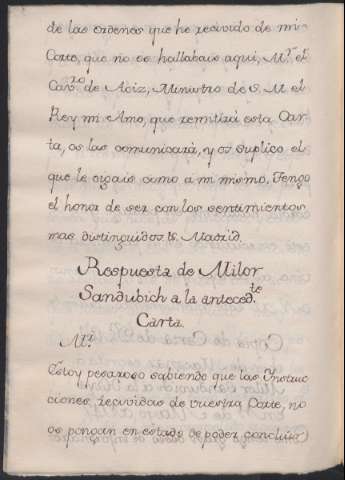 de las ordenes que he recivido de mi
Corte, que no os hallabais aqui, M.r el
Cav.ro de Aciz, Ministro de S. M. el
Rey mi Amo, que remitirá esta Car-
ta, os las comunicará, y os suplico el
que le oigais como a mi mismo, Tengo
el honor de ser con los sentimientos
mas distinguidos &. Madrid.
Respuesta de Milor
Sandubich a la anteced.te
Carta.
M.r
Estoy pesaroso sabiendo que las Instruc-
ciones recividas de vuestra Corte, no
os pongan en estado de poder concluir